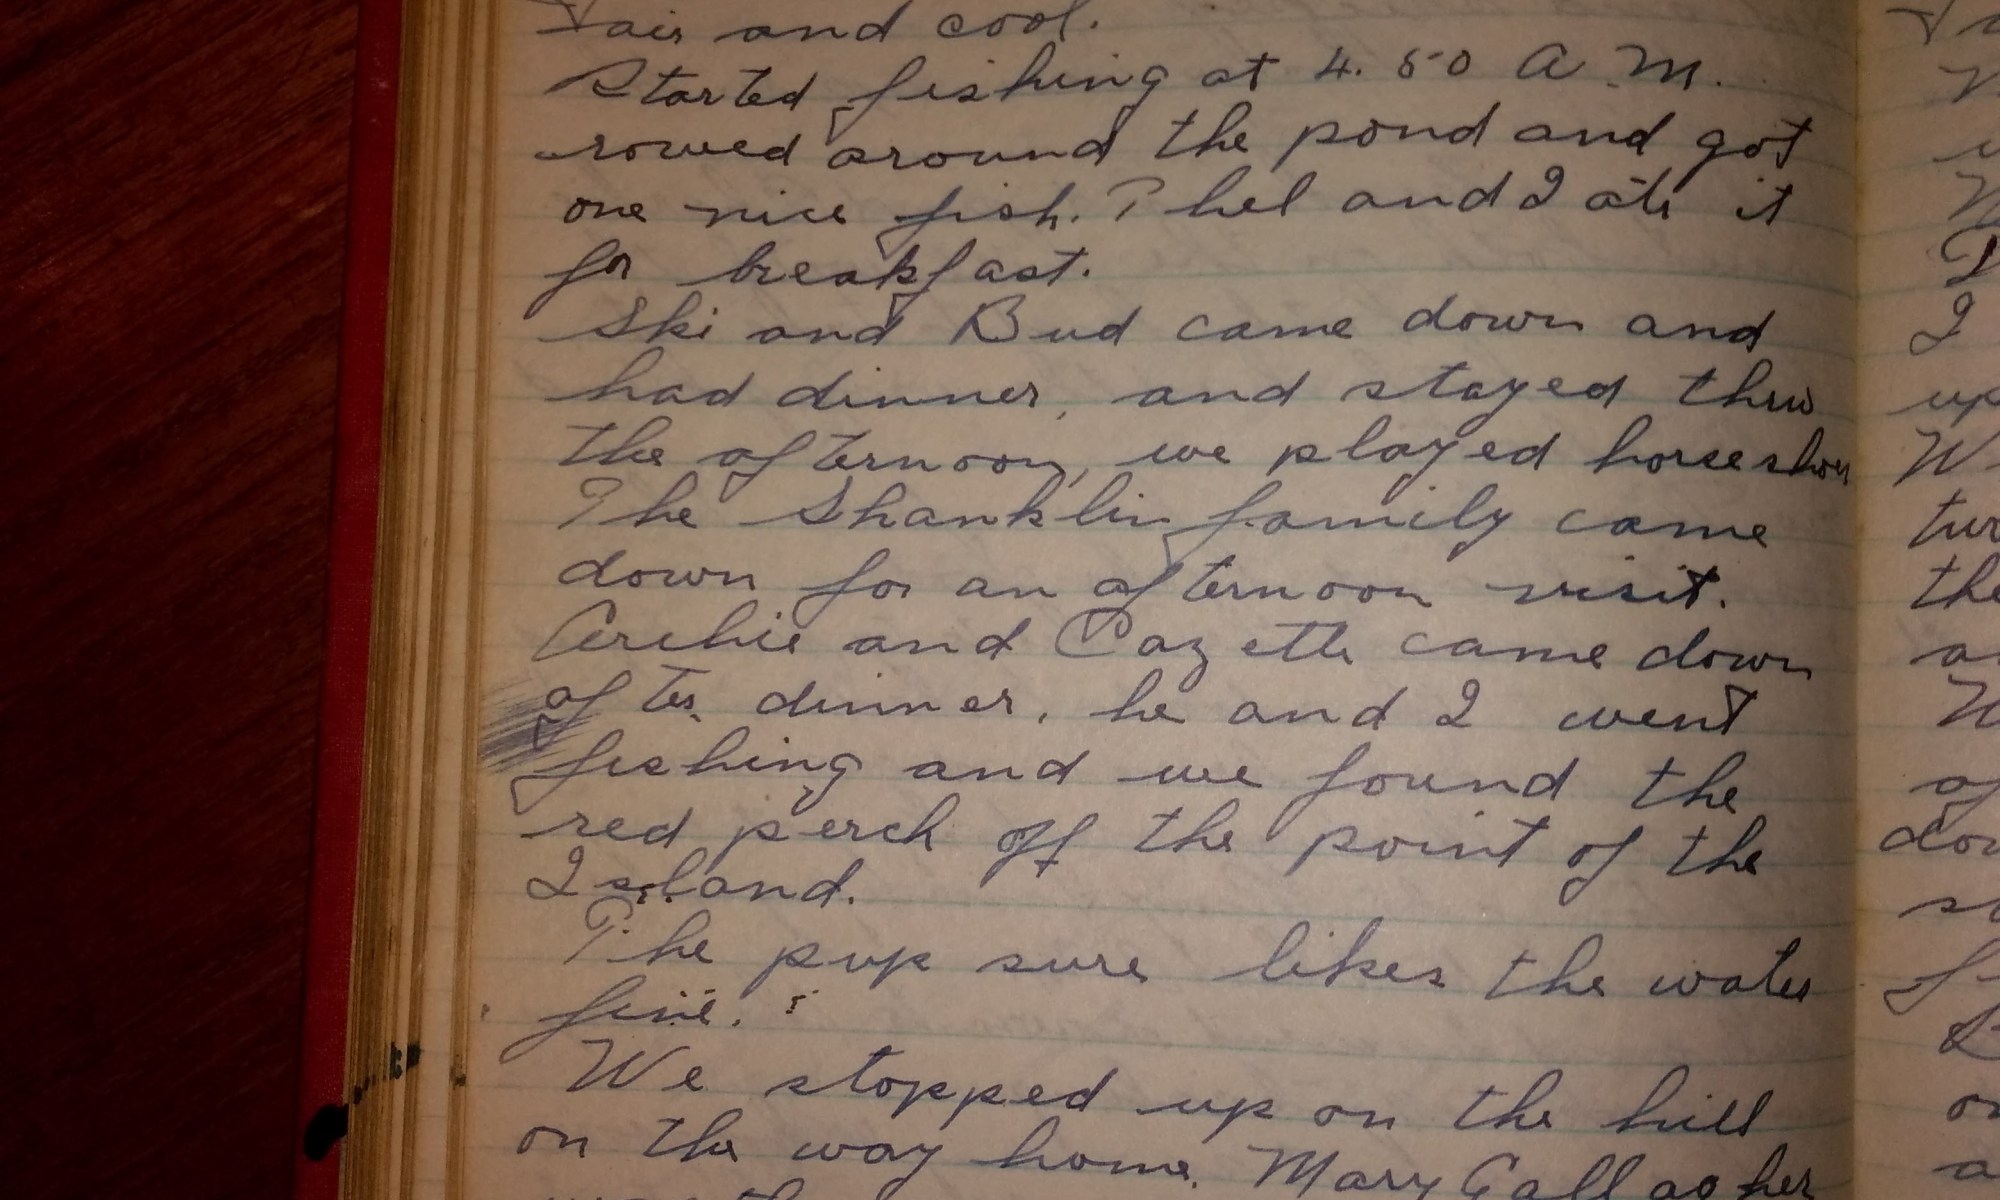 Fair and cool.
Started fishing at 4.50 A.M.
rowed around the pond and got
one nice fish. Thel and I ate it
for breakfast.
Ski and Bud came down and
had dinner, and stayed thru
the afternoon, we played horseshoes
The Shanklin family came
down for an afternoon visit.
Archie and Cozette came down
after dinner, he and I went
fishing and we found the
red perch off the point of the
Island.
The pup sure likes the water
fine.
We stopped up on the hill
on the way home. Mary Gallagher
up
W
tur
the
of
dow